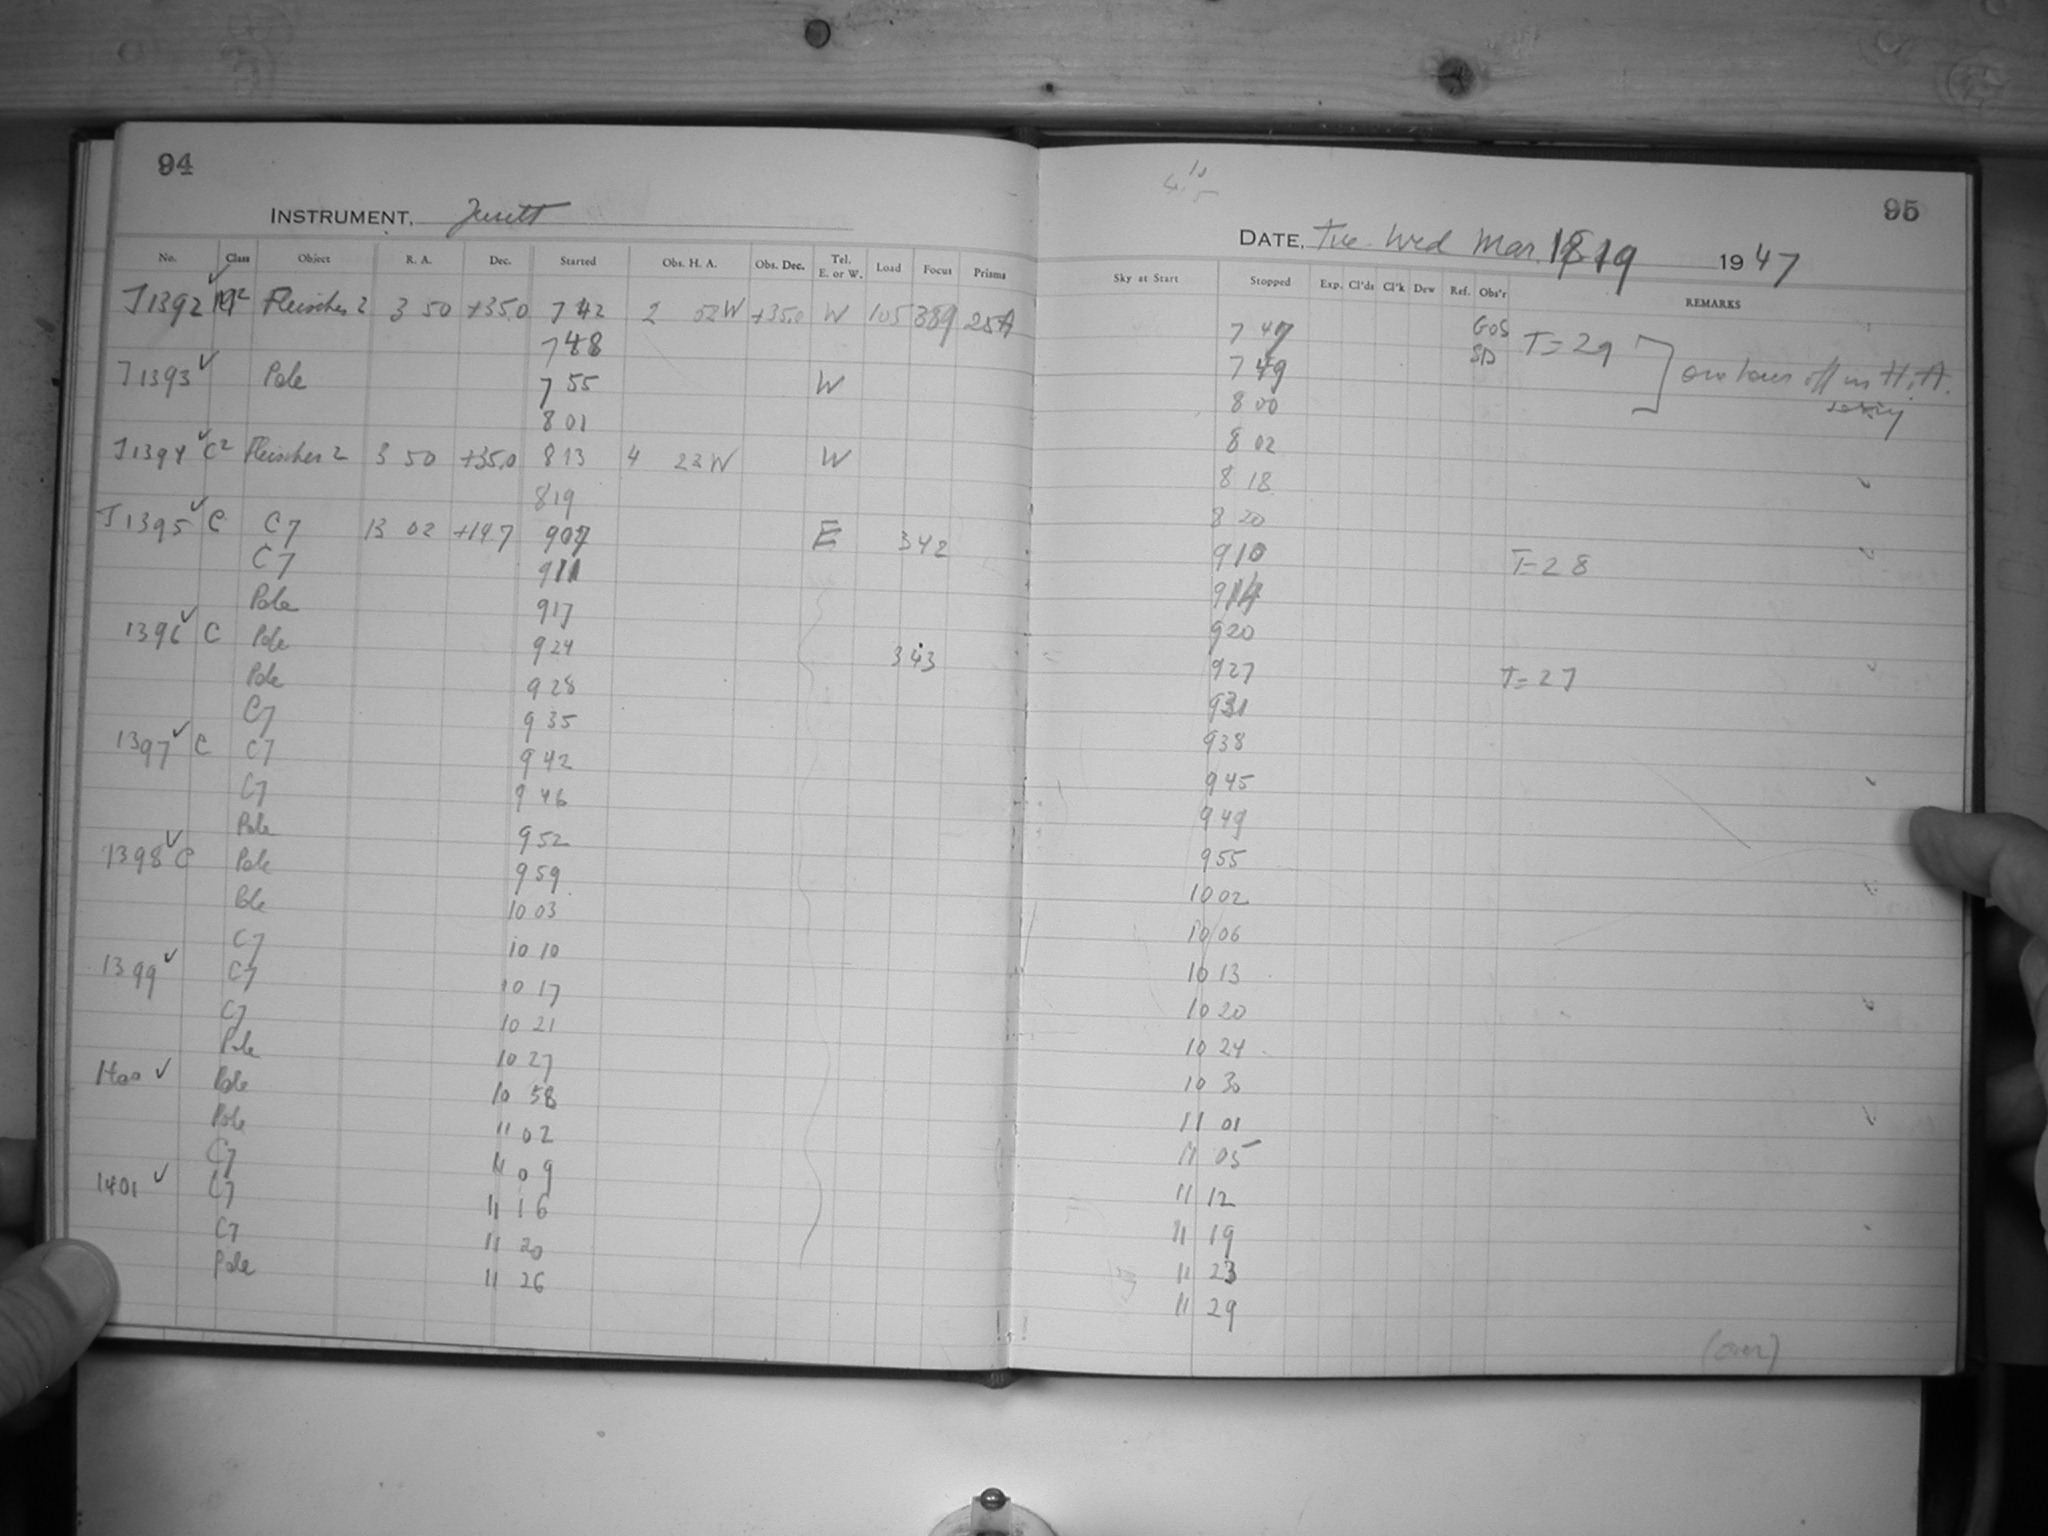 94
INSTRUMENT. Jewett
No. Class Object R. A. Dec. Started Obs. H. A. Obs. Dec. Tel. E. or W. Load Focus Prisms
J1392 Fleischer 2 3 50 +35.0 7 42 2 02W +35.0 W 105 389 25A
7 48
J1393 Pole 7 55 W
8 01
J1394 C2 Fleischer 2 3 50 +35.0 8 13 4 22W W
8 19
J1395 C C7 13 02 +14.7 907 E 342
C7 911
Pole 917
1396 C Pole 924 343
Pole 928
C7 935
1397 C C7 9 42
C7 9 46
Pole 952
1398 C Pole 959
Pole 10 03
C7 10 10
1399 C7 10 17
C7 10 21
Pole 10 27
1400 Pole 10 58
Pole 11 02
C7 11 09
1401 C7 11 16
C7 11 20
Pole 11 26
95
DATE, Tue-Wed Mar. 18-19 1947
Sky at Start Stopped Exp. Cl'ds Cl'k Dew Ref. Obs'r REMARKS
7 47 GOS T=29
7 49 SD one hour off in H.A.
8 00
8 02
8 18
8 20
910 T=28
914
920
927 T=27
931
938
945
949
955
10 02
10 06
10 13
10 20
10 24
10 30
11 01
11 05
11 12
11 19
11 23
11 29
(over)